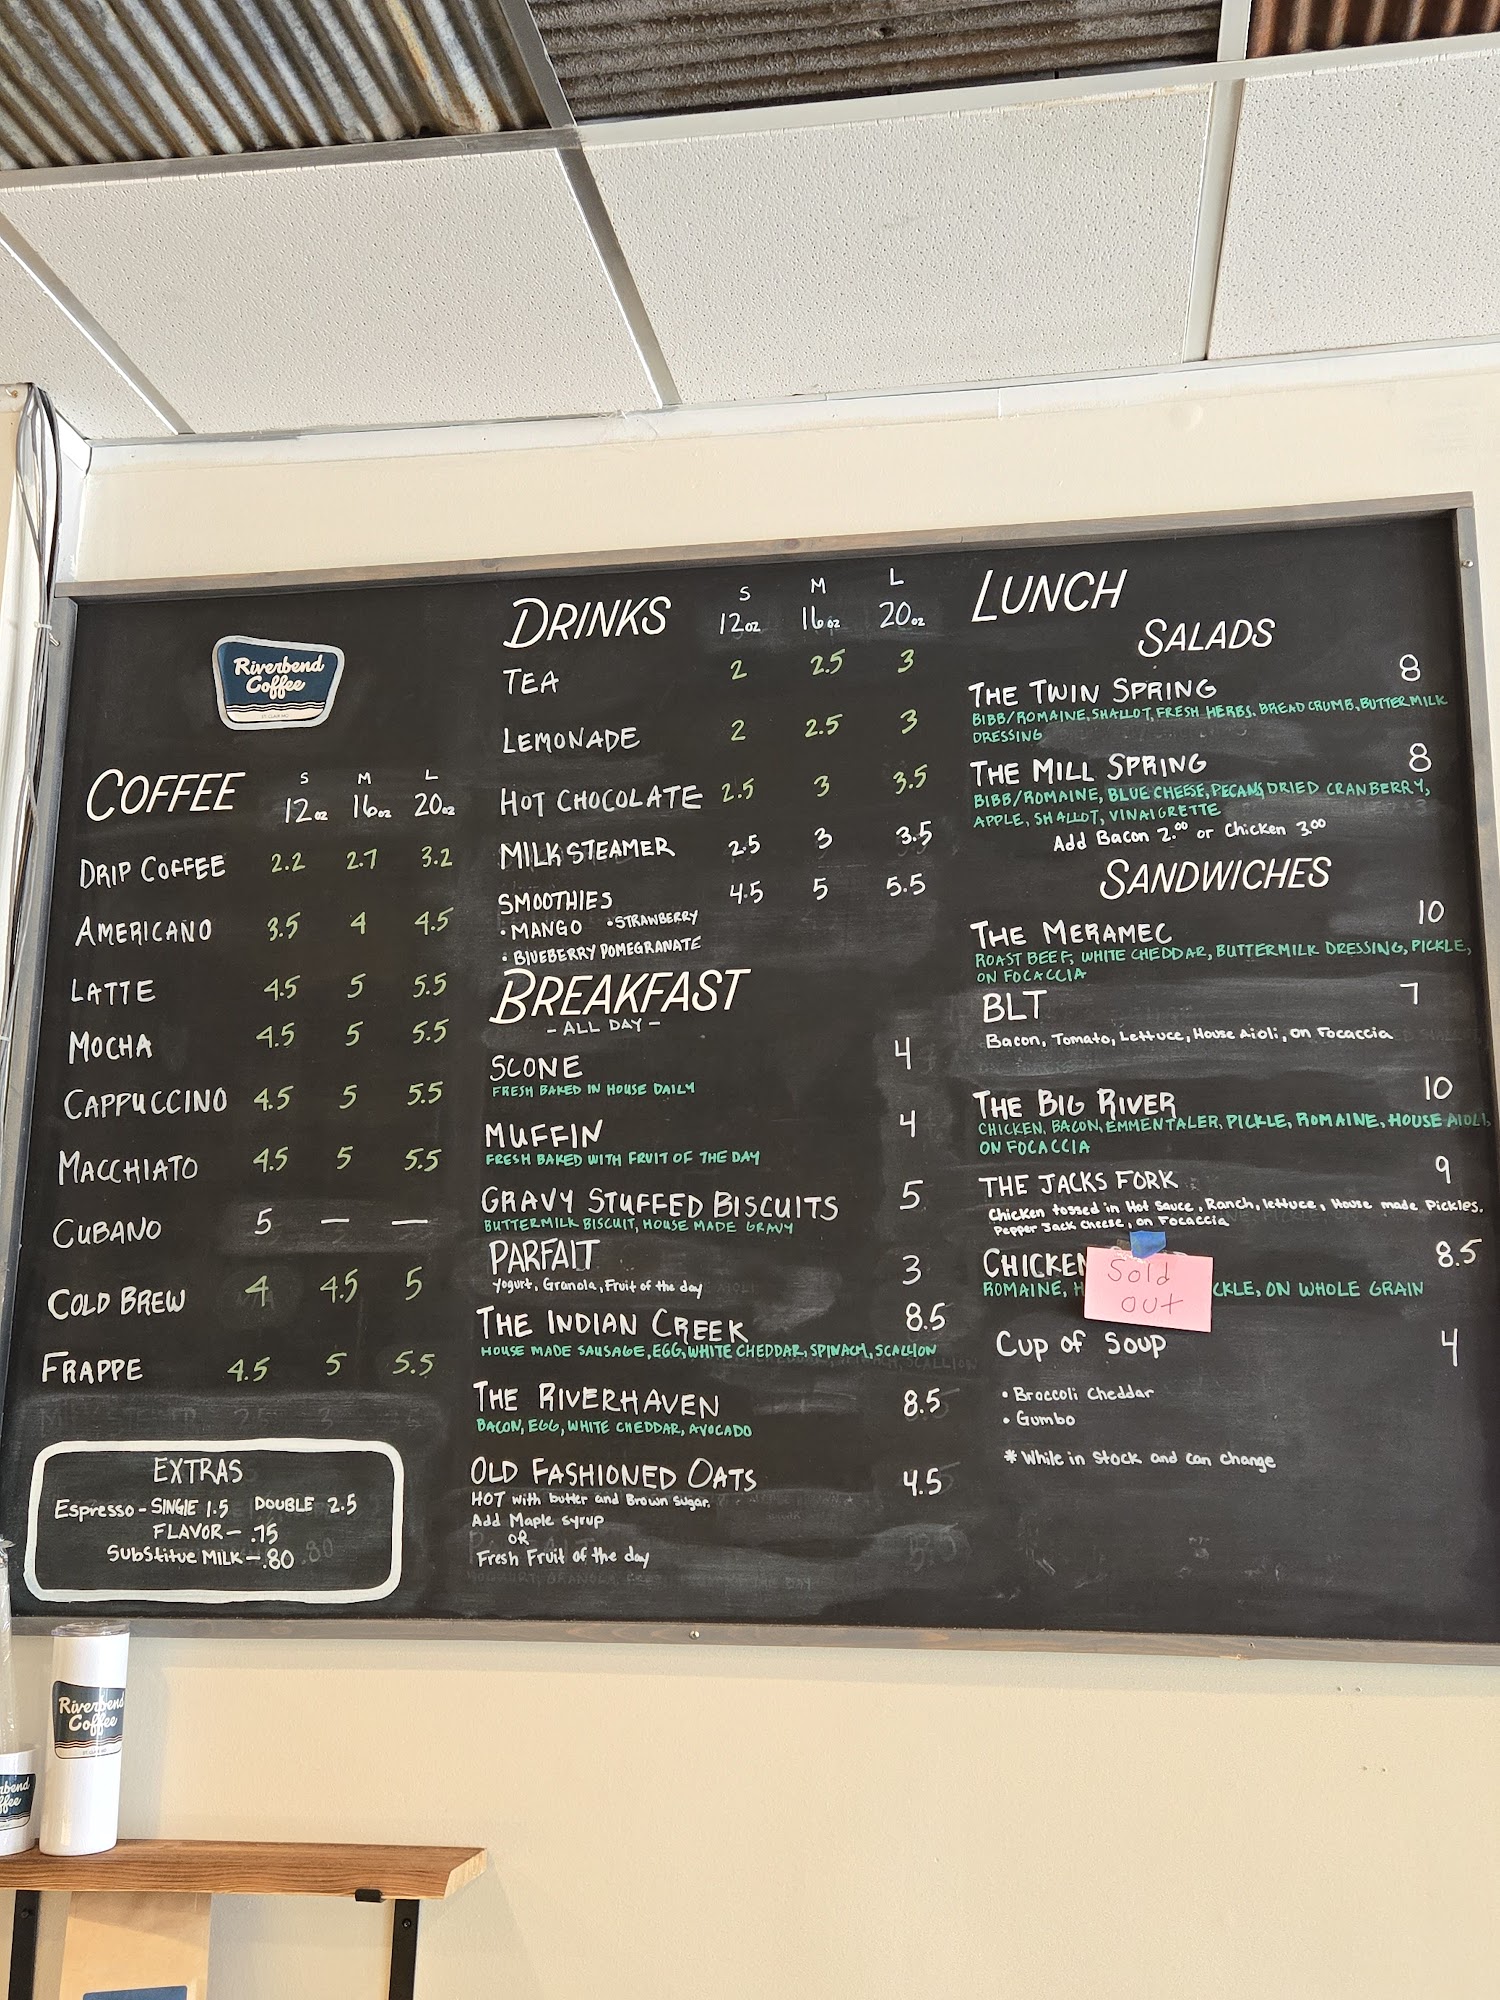 Riverbend
Coffee
COFFEE
S M L
12oz 16oz 20oz
DRIP COFFEE 2.2 2.7 3.2
AMERICANO 3.5 4 4.5
LATTE 4.5 5 5.5
MOCHA 4.5 5 5.5
CAPPUCCINO 4.5 5 5.5
MACCHIATO 4.5 5 5.5
CUBANO 5 — —
COLD BREW 4 4.5 5
FRAPPE 4.5 5 5.5
EXTRAS
Espresso - SINGLE 1.5 DOUBLE 2.5
FLAVOR - .75
Substitue MILK - .80
DRINKS
S M L
12oz 16oz 20oz
TEA 2 2.5 3
LEMONADE 2 2.5 3
HOT CHOCOLATE 2.5 3 3.5
MILK STEAMER 2.5 3 3.5
SMOOTHIES 4.5 5 5.5
• MANGO • STRAWBERRY
• BLUEBERRY POMEGRANATE
BREAKFAST
- ALL DAY -
SCONE 4
FRESH BAKED IN HOUSE DAILY
MUFFIN 4
FRESH BAKED WITH FRUIT OF THE DAY
GRAVY STUFFED BISCUITS 5
BUTTERMILK BISCUIT, HOUSE MADE GRAVY
PARFAIT 3
Yogurt, Granola, Fruit of the day
THE INDIAN CREEK 8.5
HOUSE MADE SAUSAGE, EGG, WHITE CHEDDAR, SPINACH, SCALLION
THE RIVERHAVEN 8.5
BACON, EGG, WHITE CHEDDAR, AVOCADO
OLD FASHIONED OATS 4.5
HOT with butter and Brown Sugar.
Add Maple syrup
OR
Fresh Fruit of the day
LUNCH
SALADS
THE TWIN SPRING 8
BIBB/ROMAINE, SHALLOT, FRESH HERBS, BREAD CRUMB, BUTTERMILK
DRESSING
THE MILL SPRING 8
BIBB/ROMAINE, BLUE CHEESE, PECANS, DRIED CRANBERRY,
APPLE, SHALLOT, VINAIGRETTE
Add Bacon 2.00 or Chicken 3.00
SANDWICHES
THE MERAMEC 10
ROAST BEEF, WHITE CHEDDAR, BUTTERMILK DRESSING, PICKLE,
ON FOCACCIA
BLT 7
Bacon, Tomato, Lettuce, House Aioli, on Focaccia
THE BIG RIVER 10
CHICKEN, BACON, EMMENTALER, PICKLE, ROMAINE, HOUSE AIOLI,
ON FOCACCIA
THE JACKS FORK 9
Chicken tossed in Hot Sauce, Ranch, lettuce, House made Pickles,
Pepper Jack Cheese, on Focaccia
CHICKEN 8.5
Sold
out
ROMAINE, H CKLE, ON WHOLE GRAIN
Cup of Soup 4
• Broccoli Cheddar
• Gumbo
* While in Stock and can change
Riverbend
Coffee